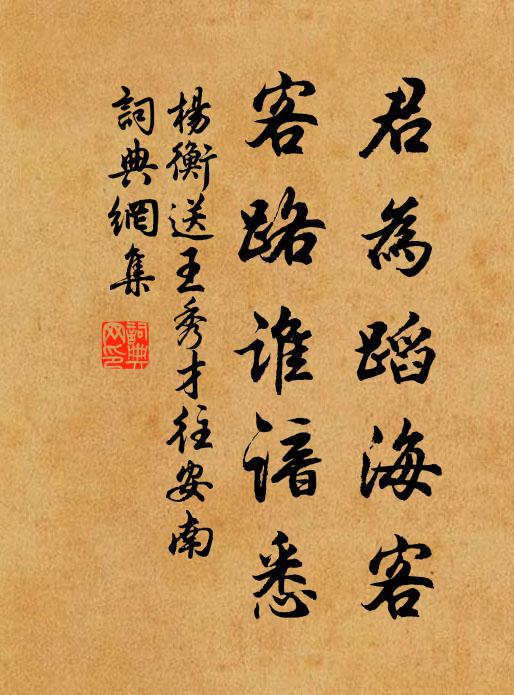 君為蹈海客
客路誰諳悉
楊衡送王秀才往安南
詞典網集
詞典网印